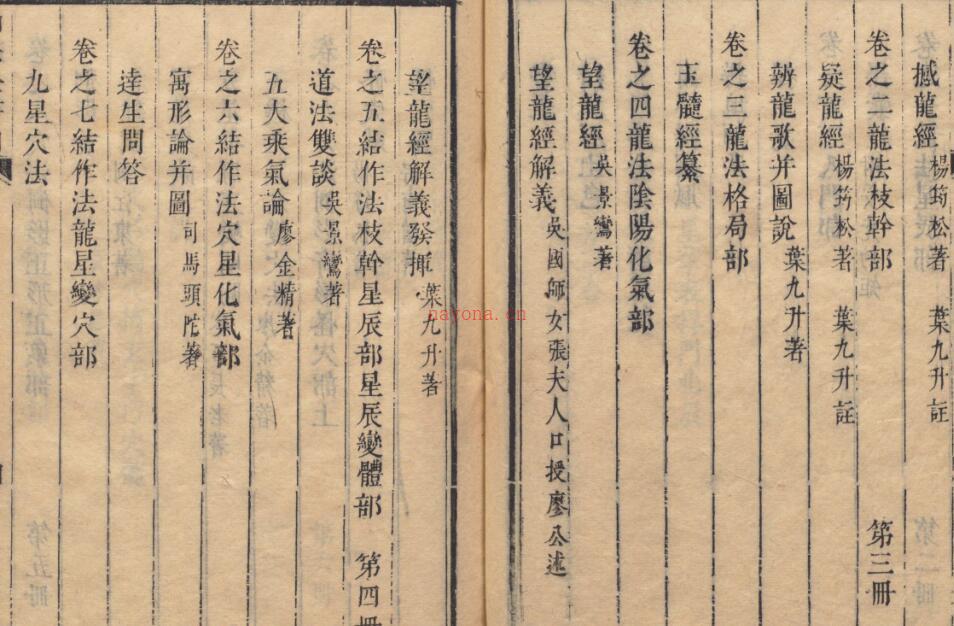 撼龍經 楊筠松著 葉九升註
卷之二龍法枝幹部 第三冊
疑龍經 楊筠松著 葉九升註
辨龍歌并圖說 葉九升著
卷之三龍法格局部
玉髓經纂
卷之四龍法陰陽化氣部
望龍經 吳景鸞著
望龍經解義 吳國師女張夫人口授廖公述
望龍經解義發揮 葉九升著
卷之五結作法枝幹星辰部星辰變體部 第四冊
道法雙談 吳景鸞著
五大乘氣論 廖金精著
卷之六結作法穴星化氣部
寓形論并圖 司馬頭陀著
達生問答
卷之七結作法龍星變穴部
九星穴法
nayona.cn